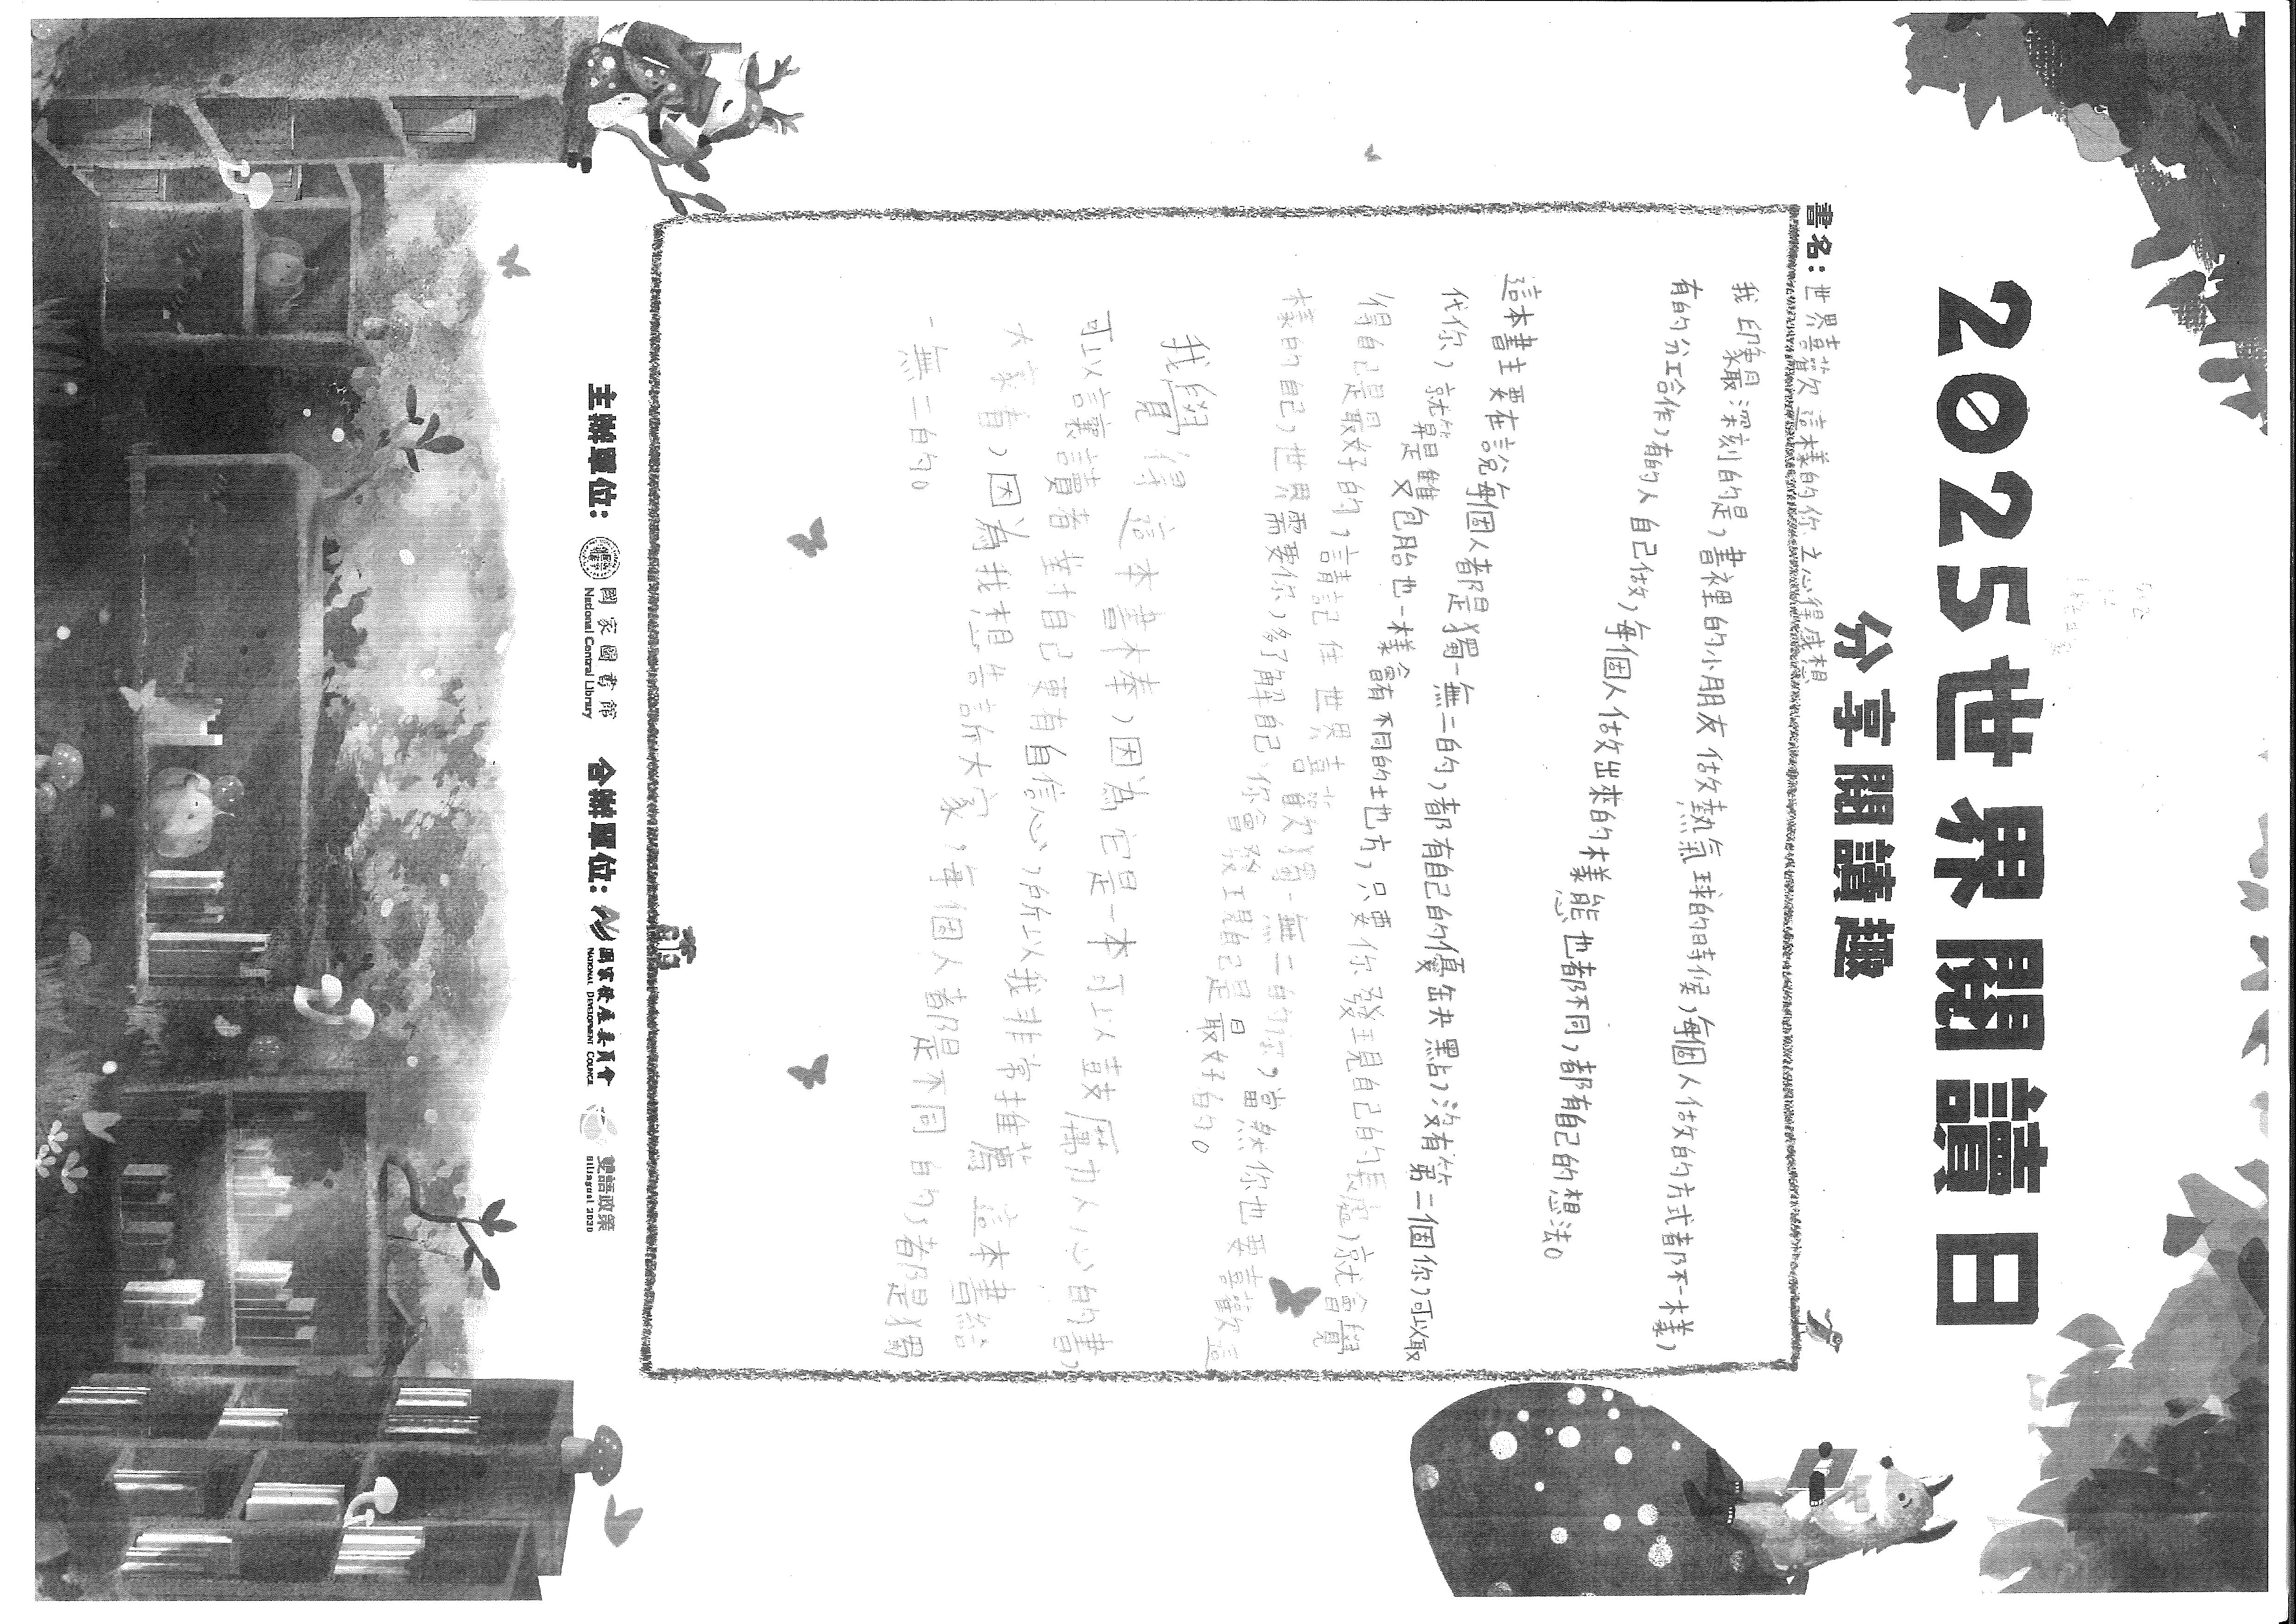 2025世界閱讀日
分享閱讀趣
書名：世界喜歡這樣的你之心得感想
我印象最深刻的是，書裡的小朋友做熱氣球的時候，每個人做的方式都不一樣，
有的分工合作，有的人自己做，每個人做出來的樣態也都不同，都有自己的想法。
這本書主要在說每個人都是獨一無二的，都有自己的優缺點，沒有第二個你可以取
代你，就算是雙包胎也一樣會有不同的地方，只要你發現自己的長處，就會覺
得自己是最好的，請記住世界喜歡獨一無二的你，當然你也要喜歡這
樣的自己，世界需要你，多了解自己，你會發現自己是最好的。
我覺得這本書很棒，因為它是一本可以鼓勵人心的書，
可以讓讀者對自己更有自信心，所以我非常推薦這本書給
大家看，因為我想告訴大家，每個人都是不同的，都是獨
一無二的。
主辦單位：
國家圖書館
National Central Library
合辦單位：
國家發展委員會
NATIONAL DEVELOPMENT COUNCIL
雙語政策
Bilingual 2030